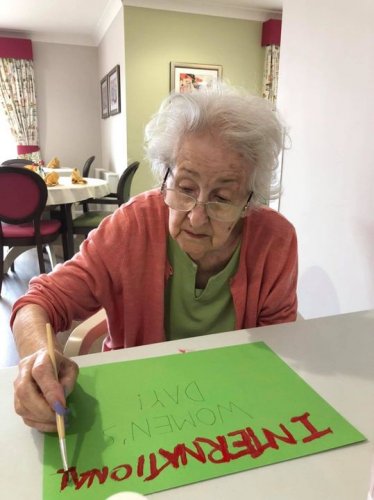 INTERNATIONAL
WOMEN'S
DAY!